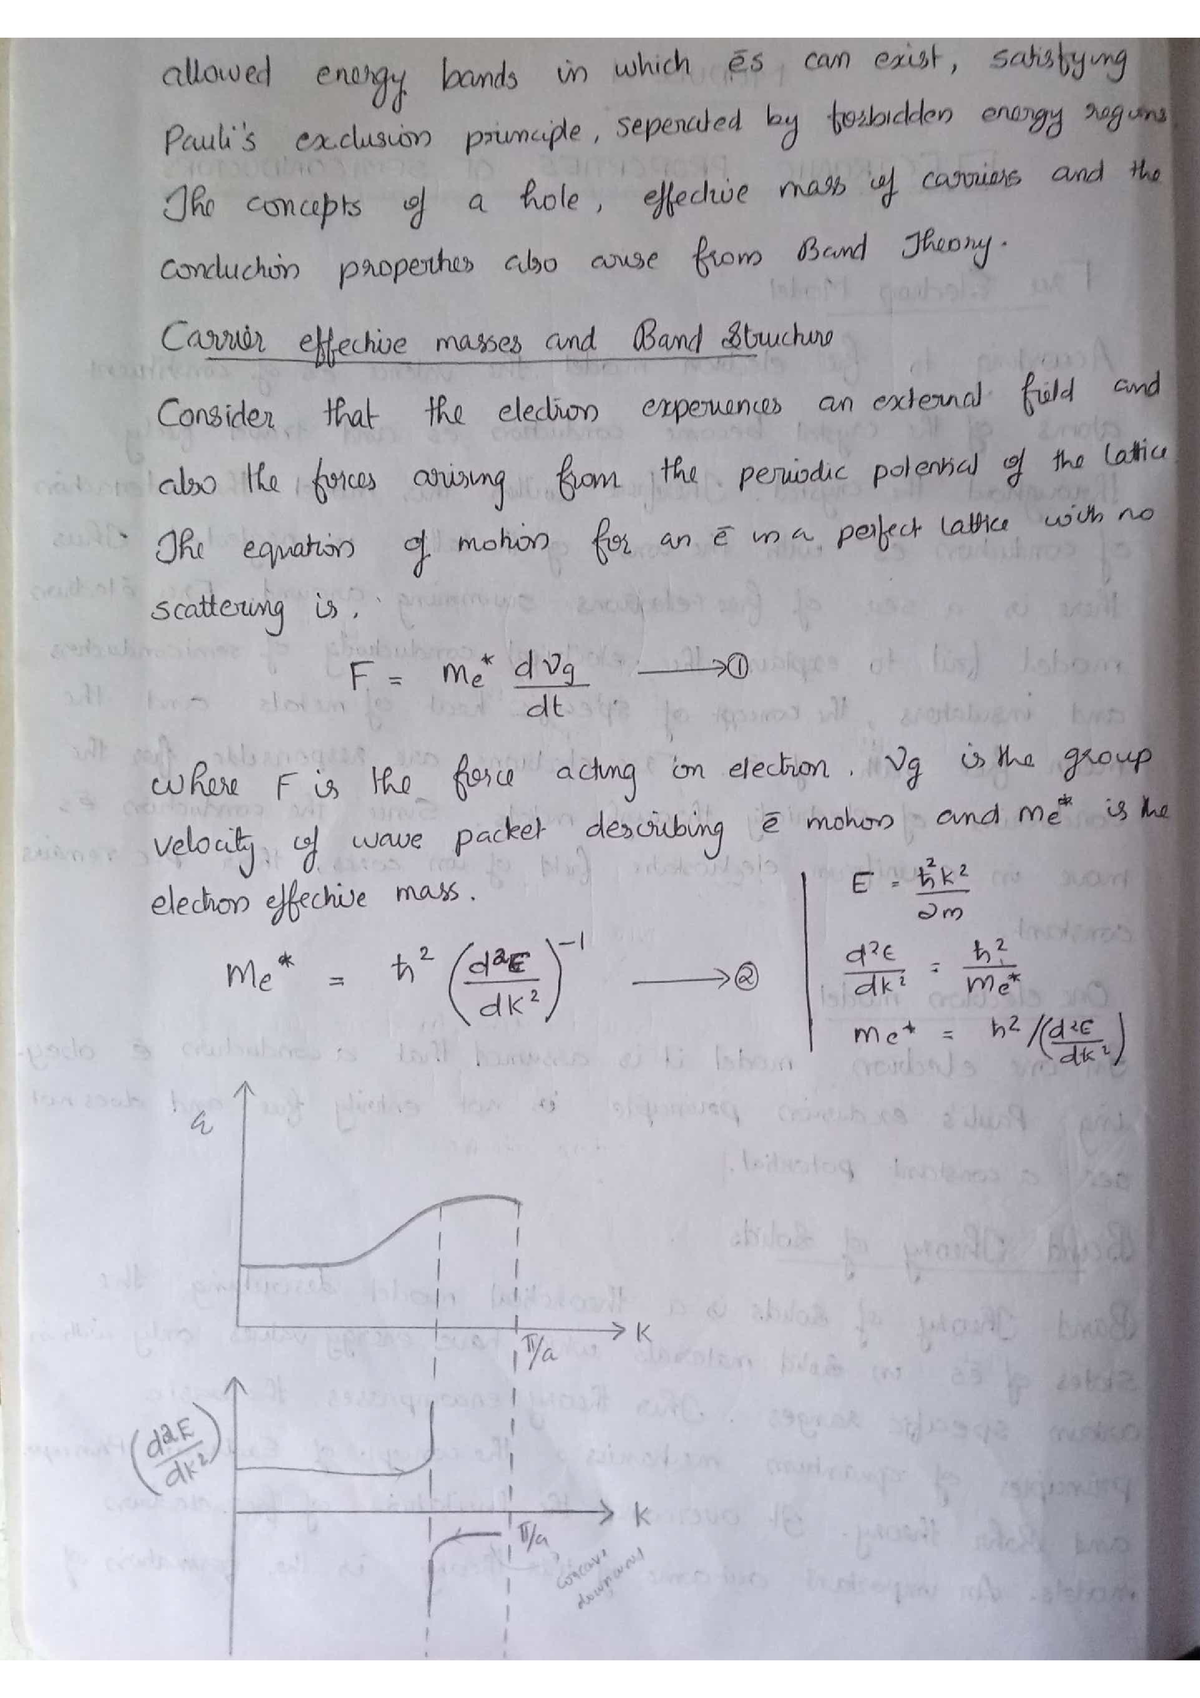 allowed energy bands in which ēs can exist, satisfying
Pauli's exclusion principle, seperated by forbidden energy regions.
The concepts of a hole, effective mass of carriers and the
conduction properties also arise from Band Theory.
Carrier effective masses and Band Structure
Consider that the electron experiences an external field and
also the forces arising from the periodic potential of the lattice
The equation of motion for an ē in a perfect lattice with no
scattering is,
F = me* dVg/dt → ①
where F is the force acting on electron. Vg is the group
velocity of wave packet describing ē motion and me* is the
electron effective mass.
me* = ħ² (d²E/dk²)⁻¹ → ②
E = ħ²k²/2m
d²E/dk² = ħ²/me*
me* = ħ²/(d²E/dk²)
E
K
π/a
(d²E/dk²)
K
π/a
concave
downward